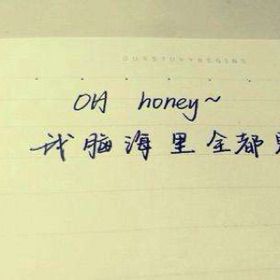 OURSTORYBEGINS
OH honey~
我脑海里全都